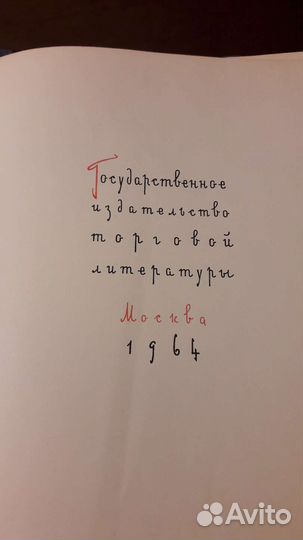 Государственное
издательство
торговой
литературы
Москва
1964
Avito